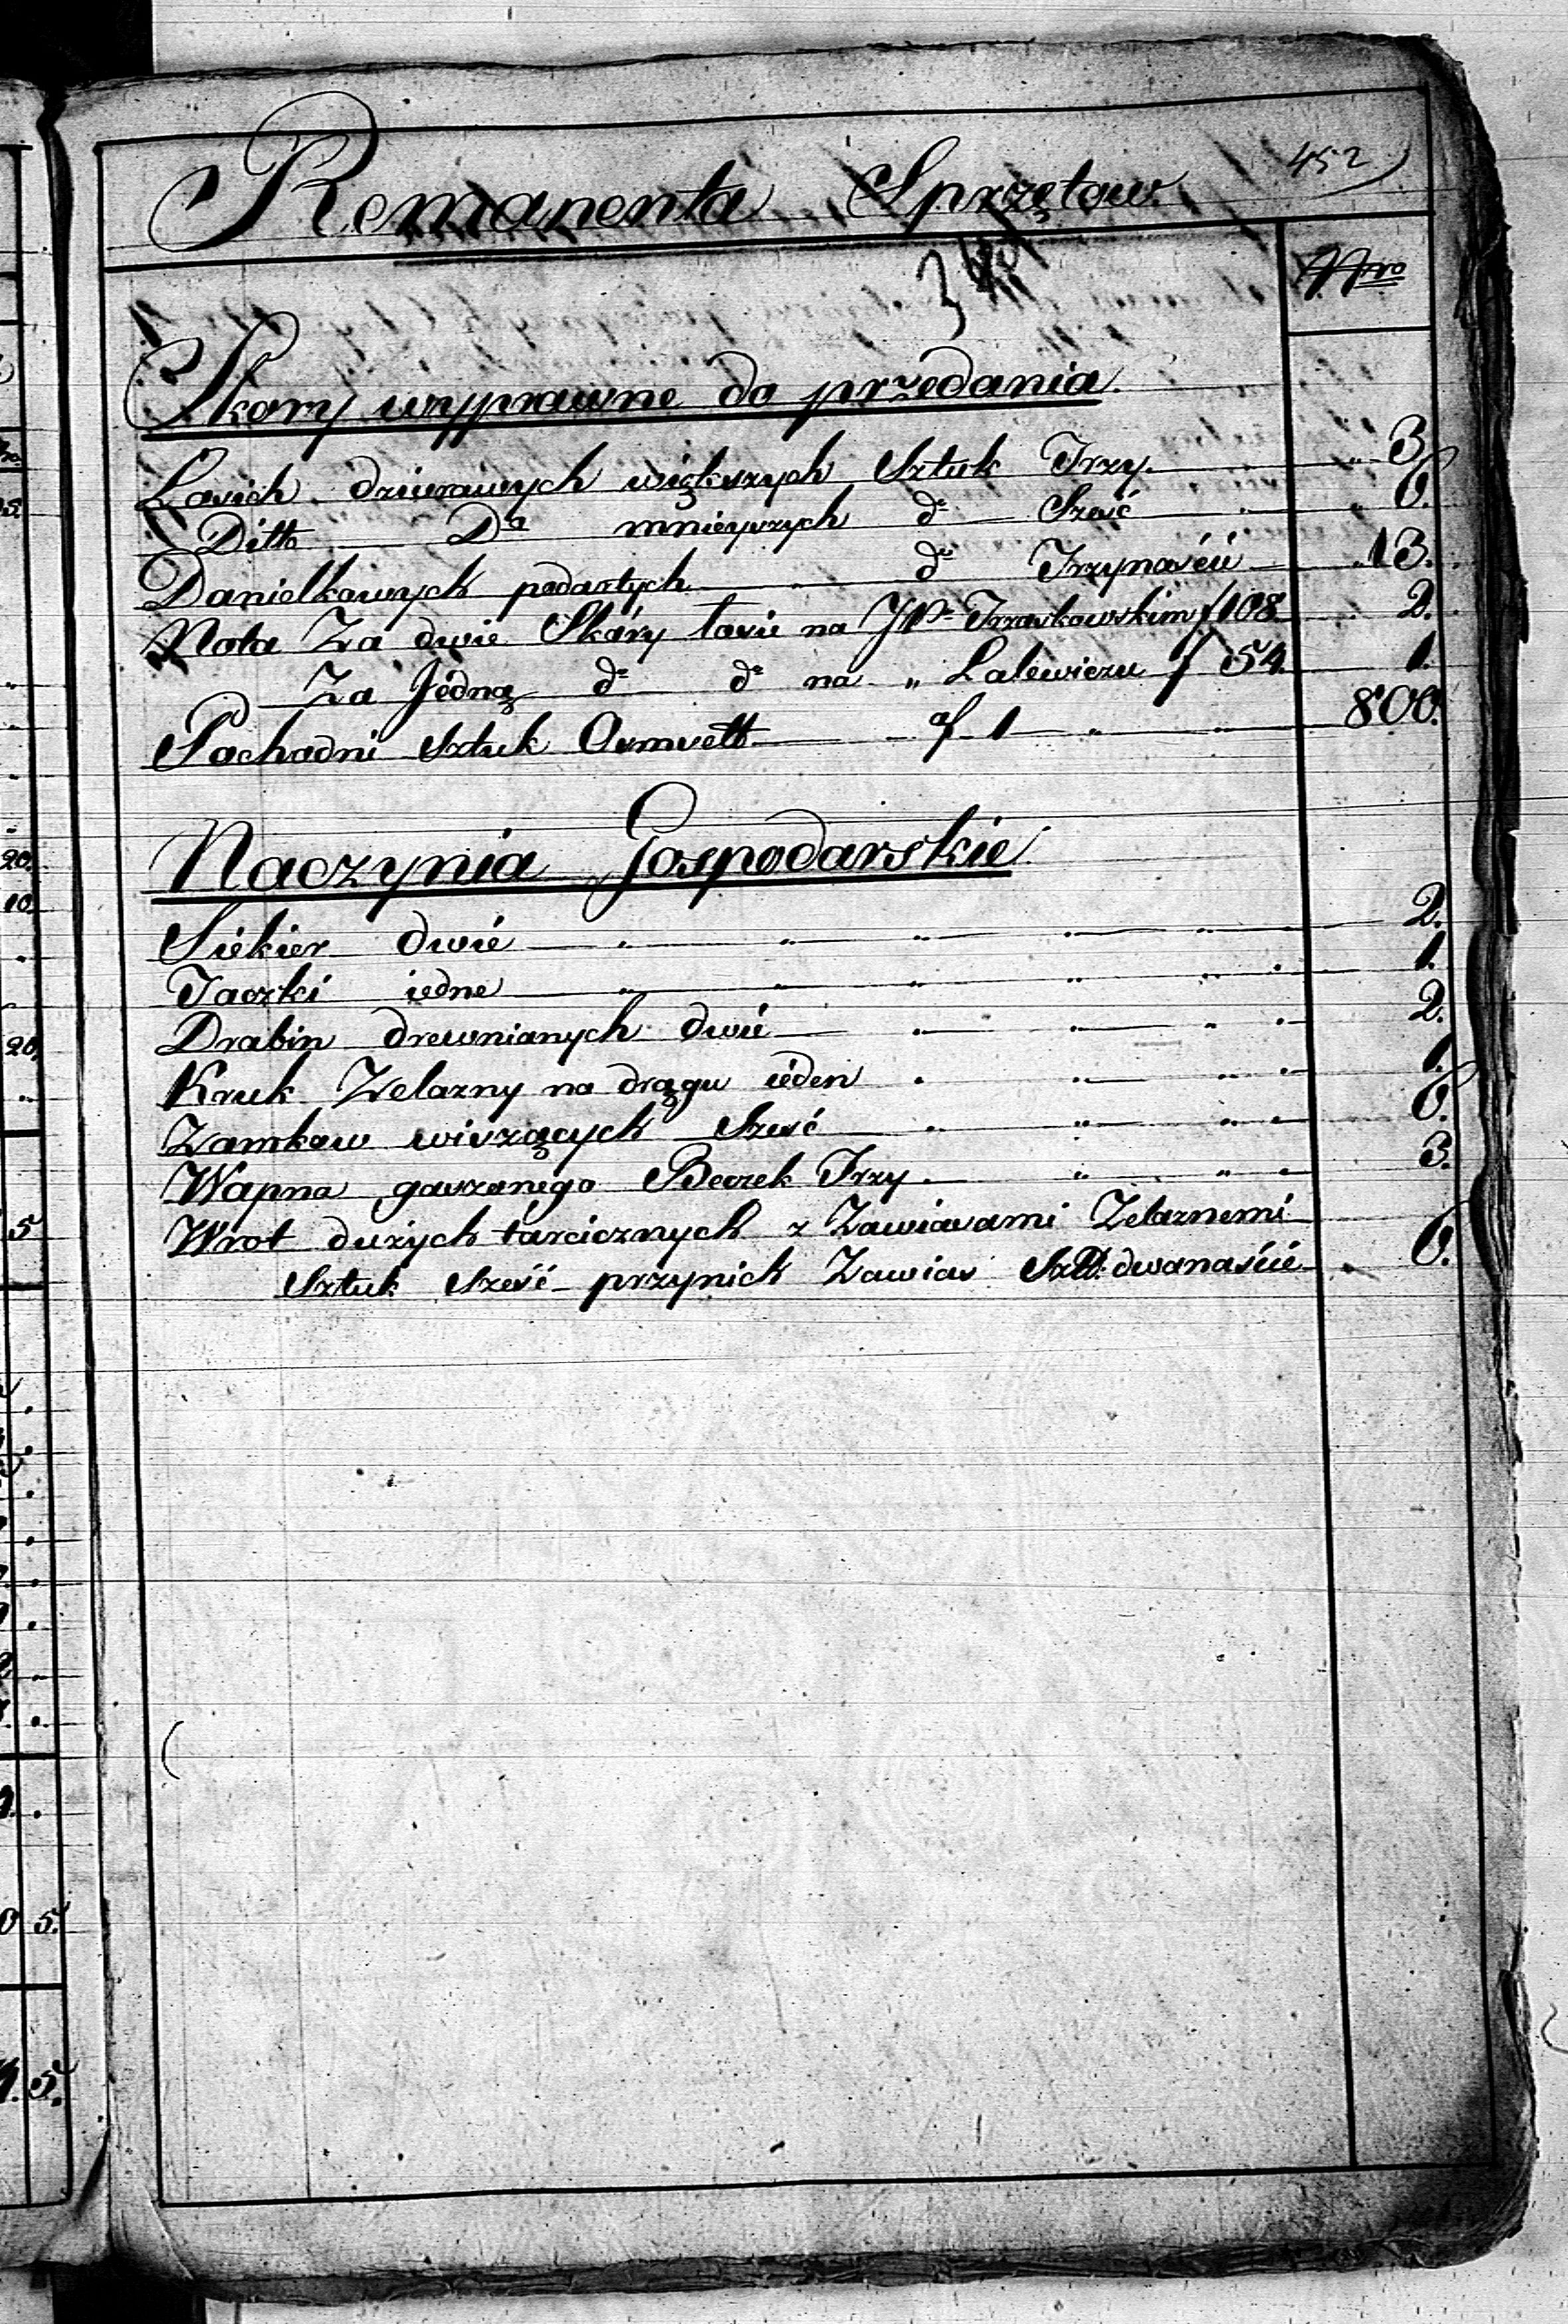 452
Remanenta Sprzętow.
Nro
Skory wyprawne do przedania.
Łosich dziurawych większych Sztuk Trzy. 3.
Ditto Do mnieyszych do Sześć 6.
Danielkowych podartych do Trzynaście 13.
Nota Za dwie Skóry łosie na JP. Trzaskowskim f 108 2.
Za Jedną do do na „ Lalewiczu f 54. 1.
Pochodni sztuk Osmset af 1 800.
Naczynia Gospodarskie.
Siekier dwie 2.
Taczki iedne 1.
Drabin drewnianych dwie 2.
Kruk Żelazny na drągu ieden 1.
Zamkow wiszących Sześć 6.
Wapna gaszonego Beczek Trzy. 3.
Wrot dużych tarcicznych z Zawiasami Żelaznemi
Sztuk sześć przynich Zawias Szt. dwanaście 6.